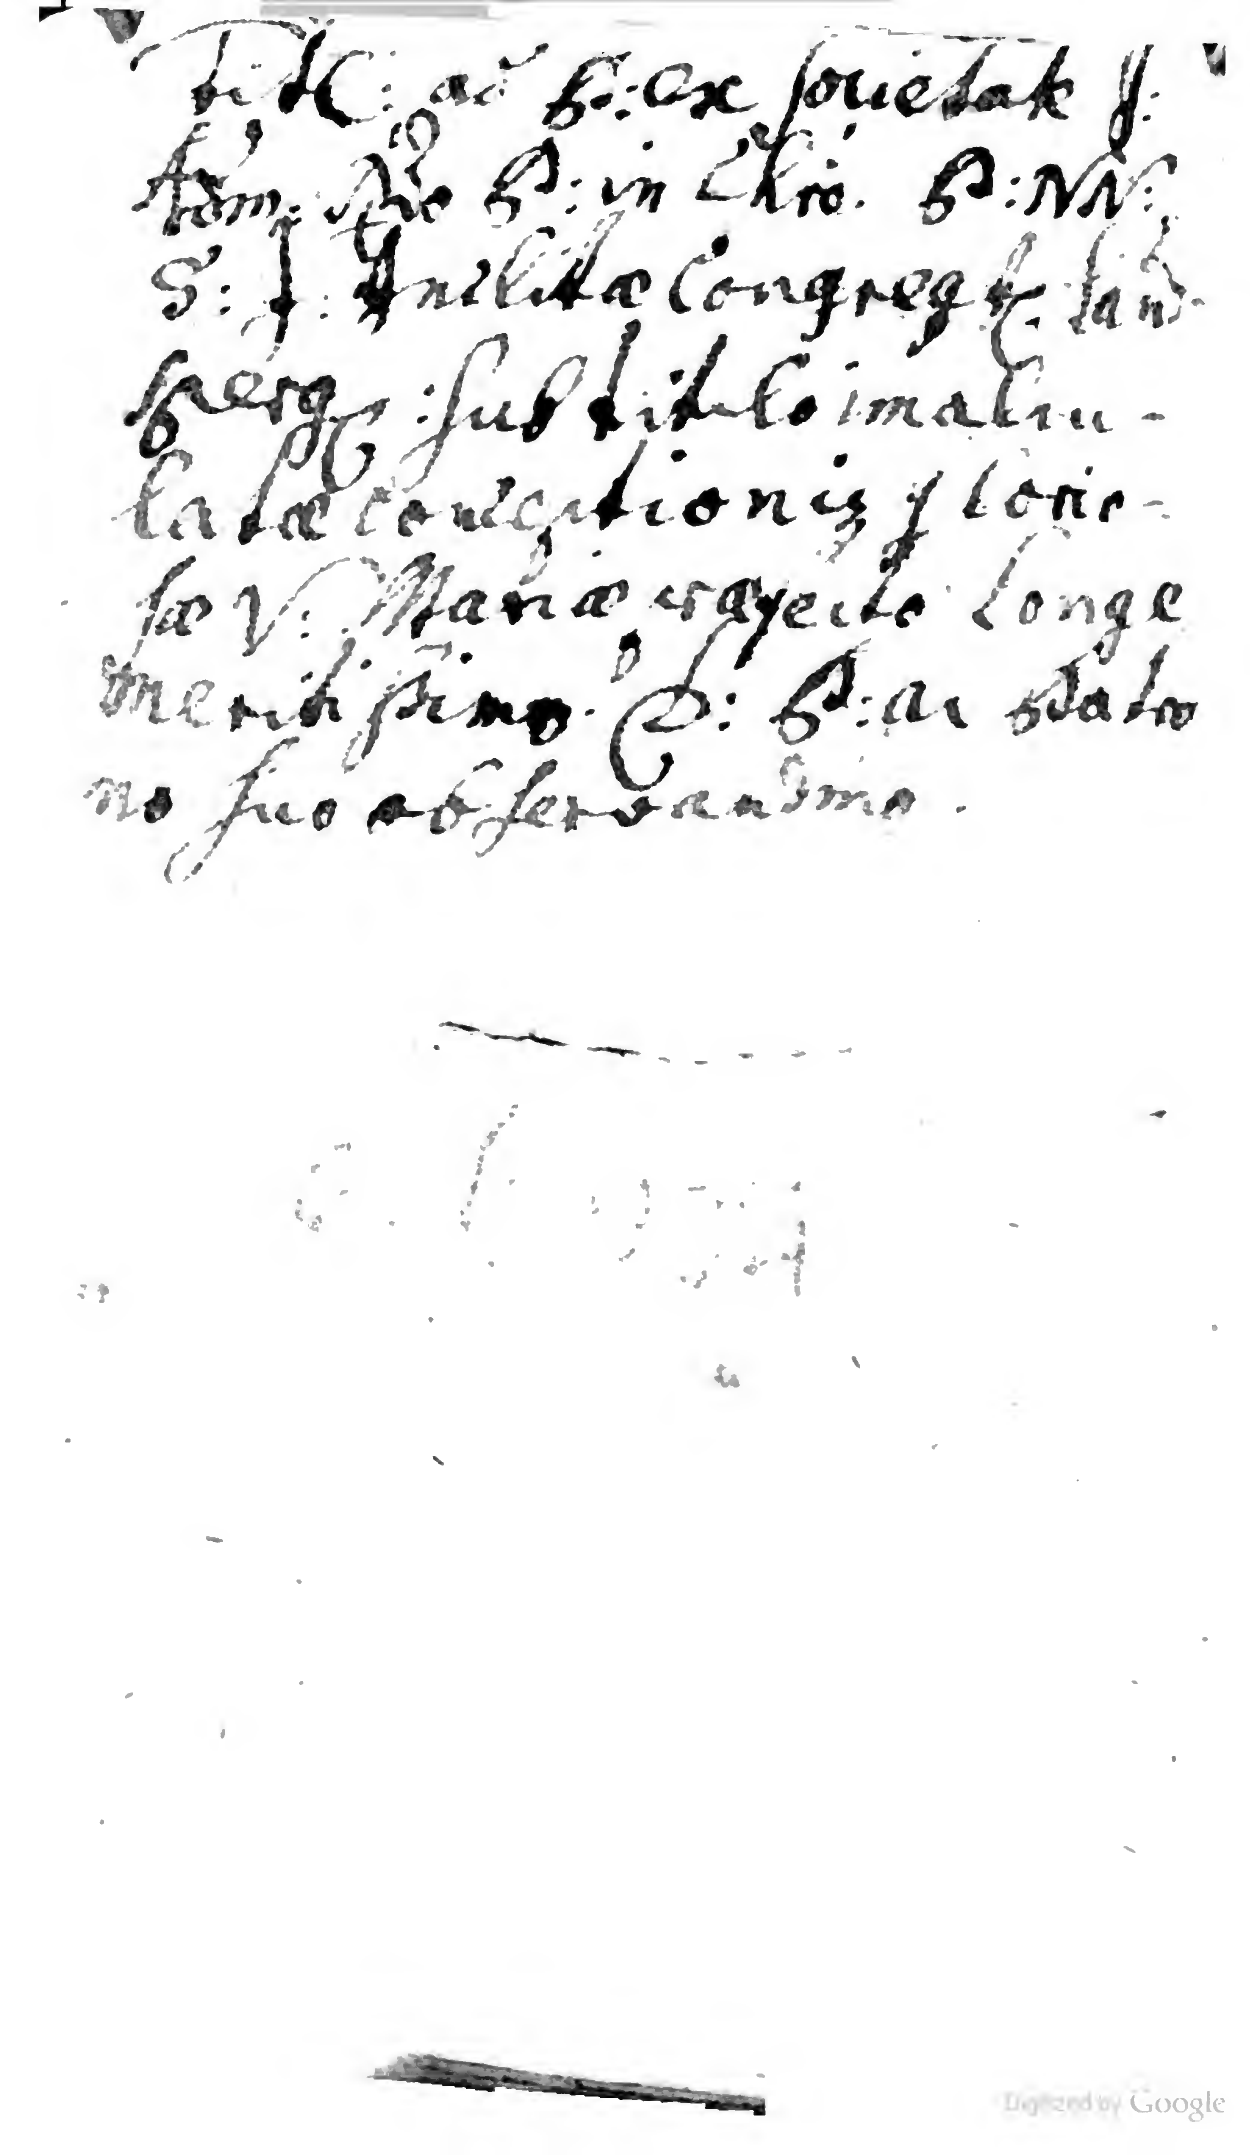 Titl: ad P: ex Societate J:
Adm. Rdo P: in Chro. P: NN:
S: J: Inclitæ Congreg: Lands-
perg: sub titulo imacu-
latæ Conceptionis glorio-
sæ V: Mariæ præsidi longe
meritissimo. P: ac Patro
no suo observandmo.
Digitized by Google